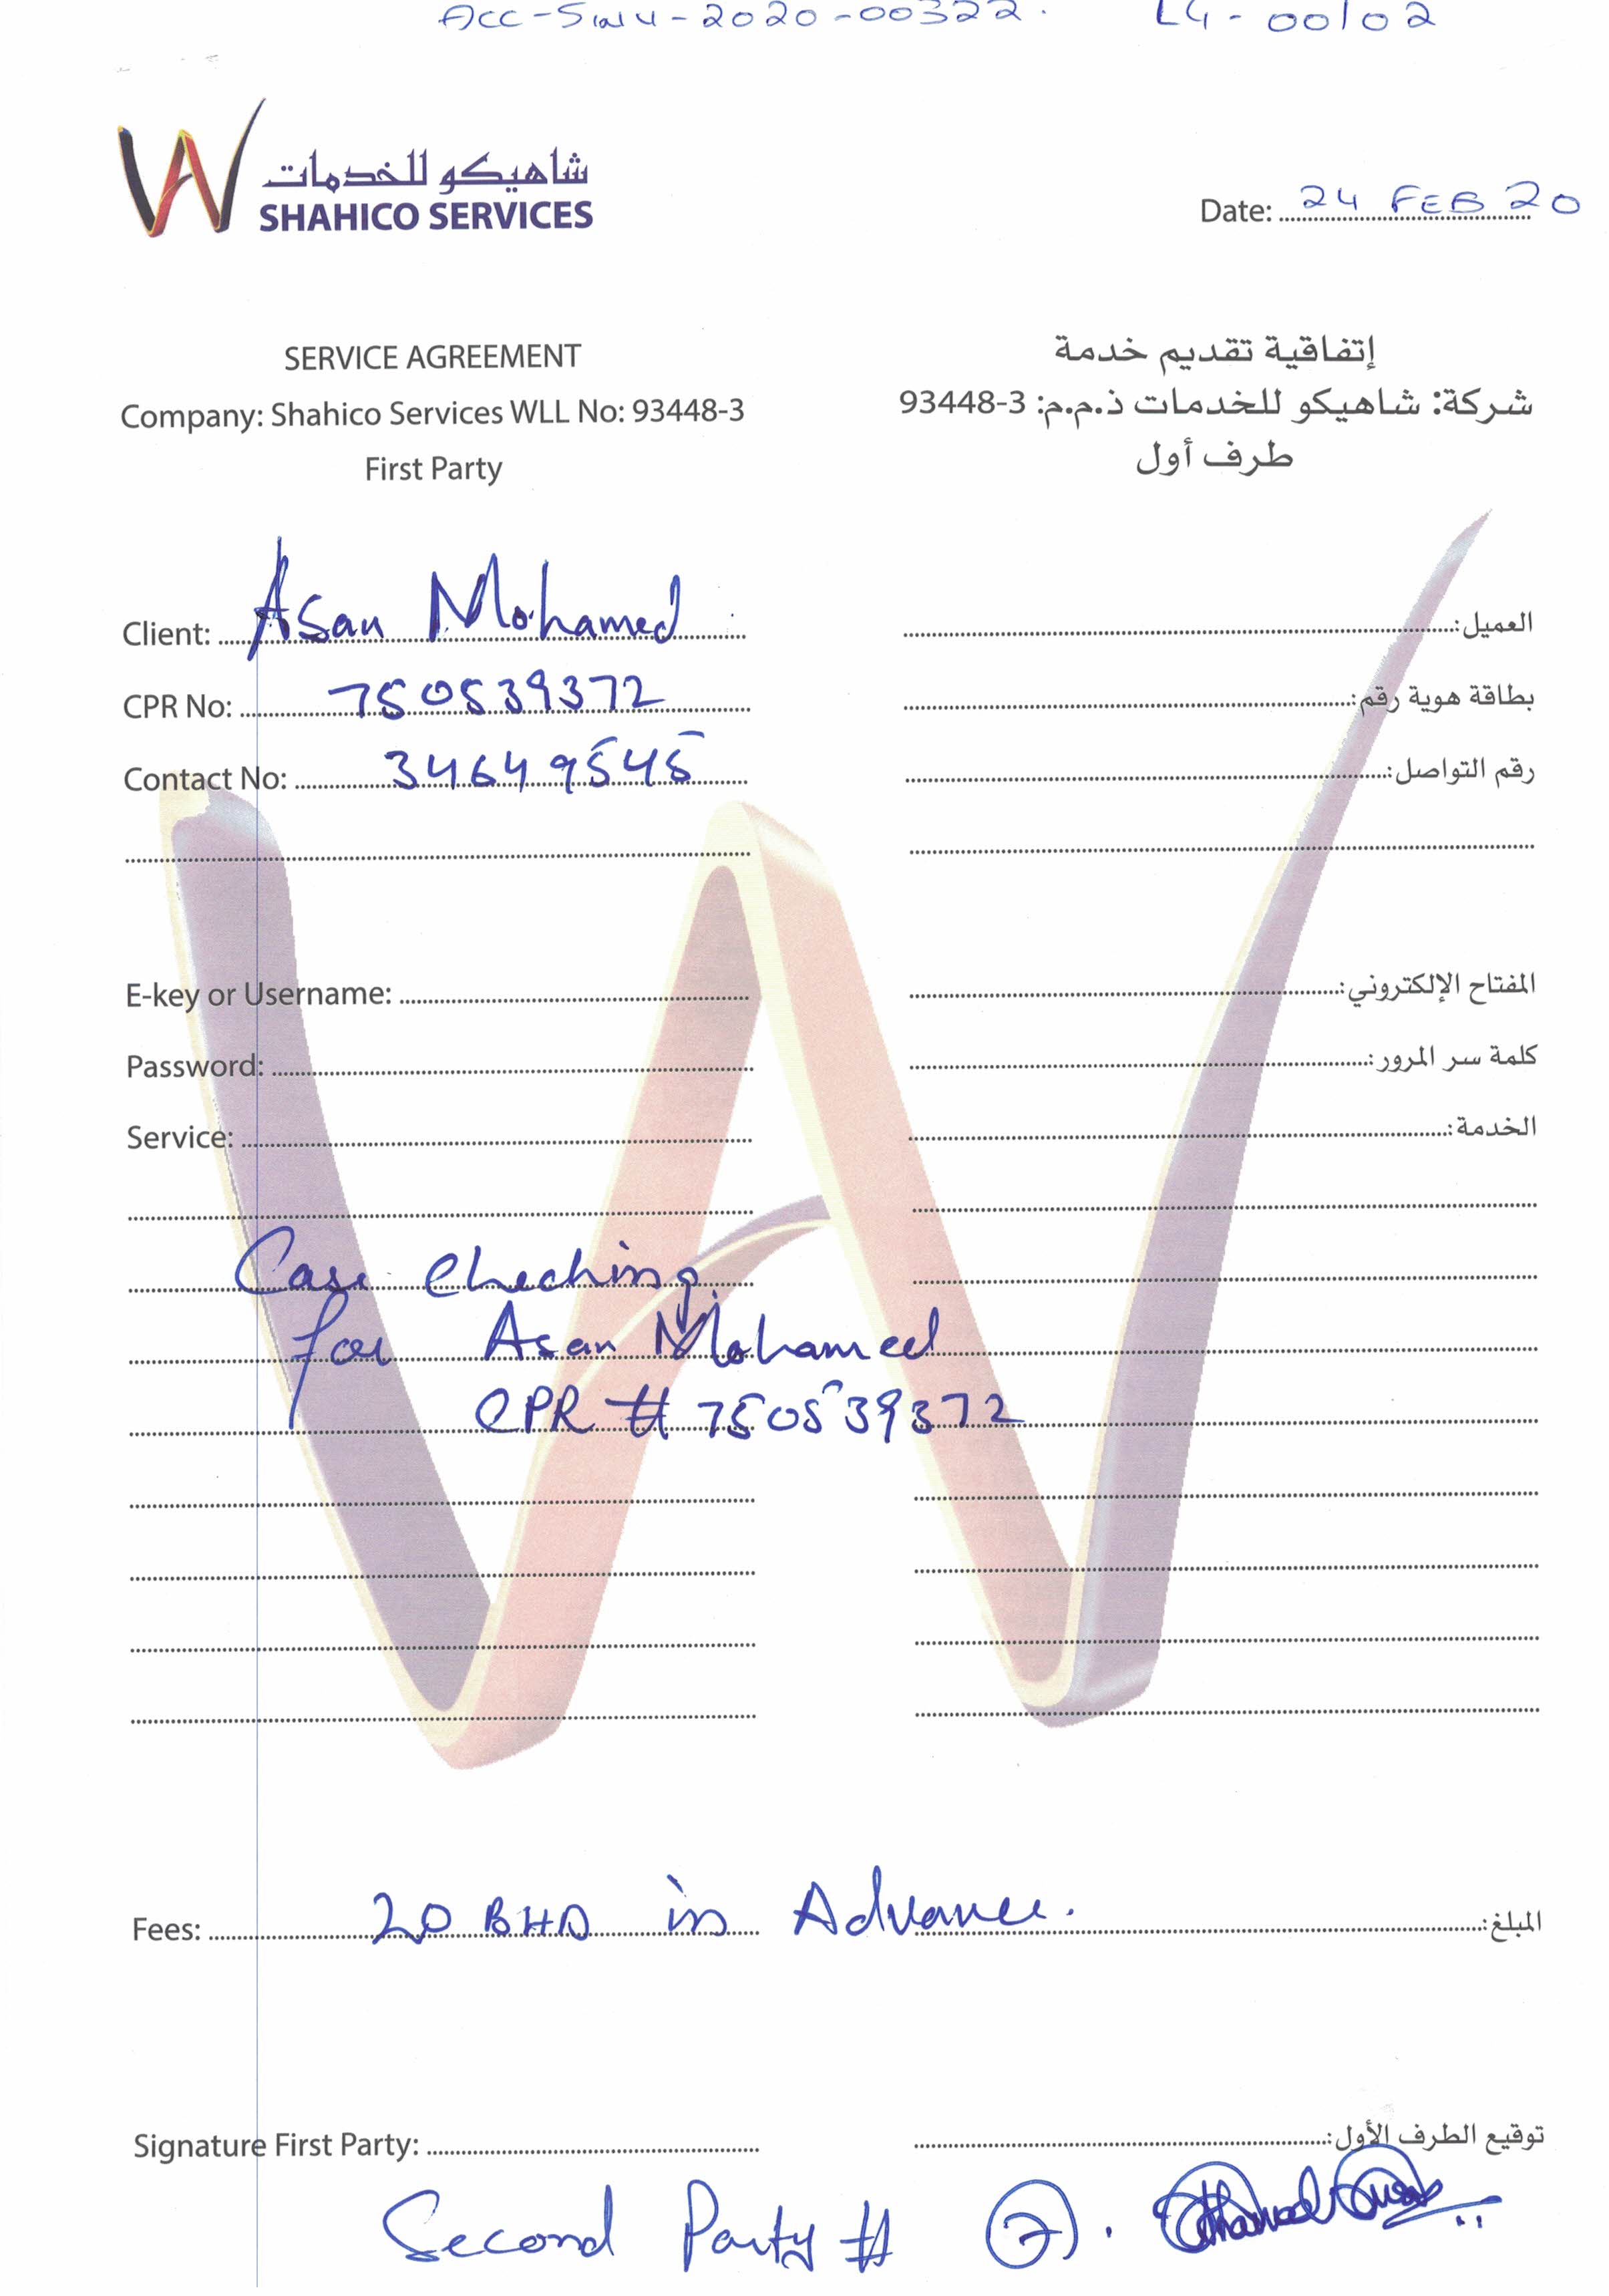 Acc-SINV-2020-00322. LG-00102
شاهيكو للخدمات
SHAHICO SERVICES
Date: 24 FEB 20
SERVICE AGREEMENT
إتفاقية تقديم خدمة
Company: Shahico Services WLL No: 93448-3
شركة: شاهيكو للخدمات ذ.م.م: 3-93448
First Party
طرف أول
Client: Asan Mohamed
العميل:
CPR No: 750539372
بطاقة هوية رقم:
Contact No: 34649545
رقم التواصل:
E-key or Username:
المفتاح الإلكتروني:
Password:
كلمة سر المرور:
Service:
الخدمة:
Case Checking
for Asan Mohamed
CPR # 750539372
Fees: 20 BHD in Advance.
المبلغ:
Signature First Party:
توقيع الطرف الأول:
Second Party #